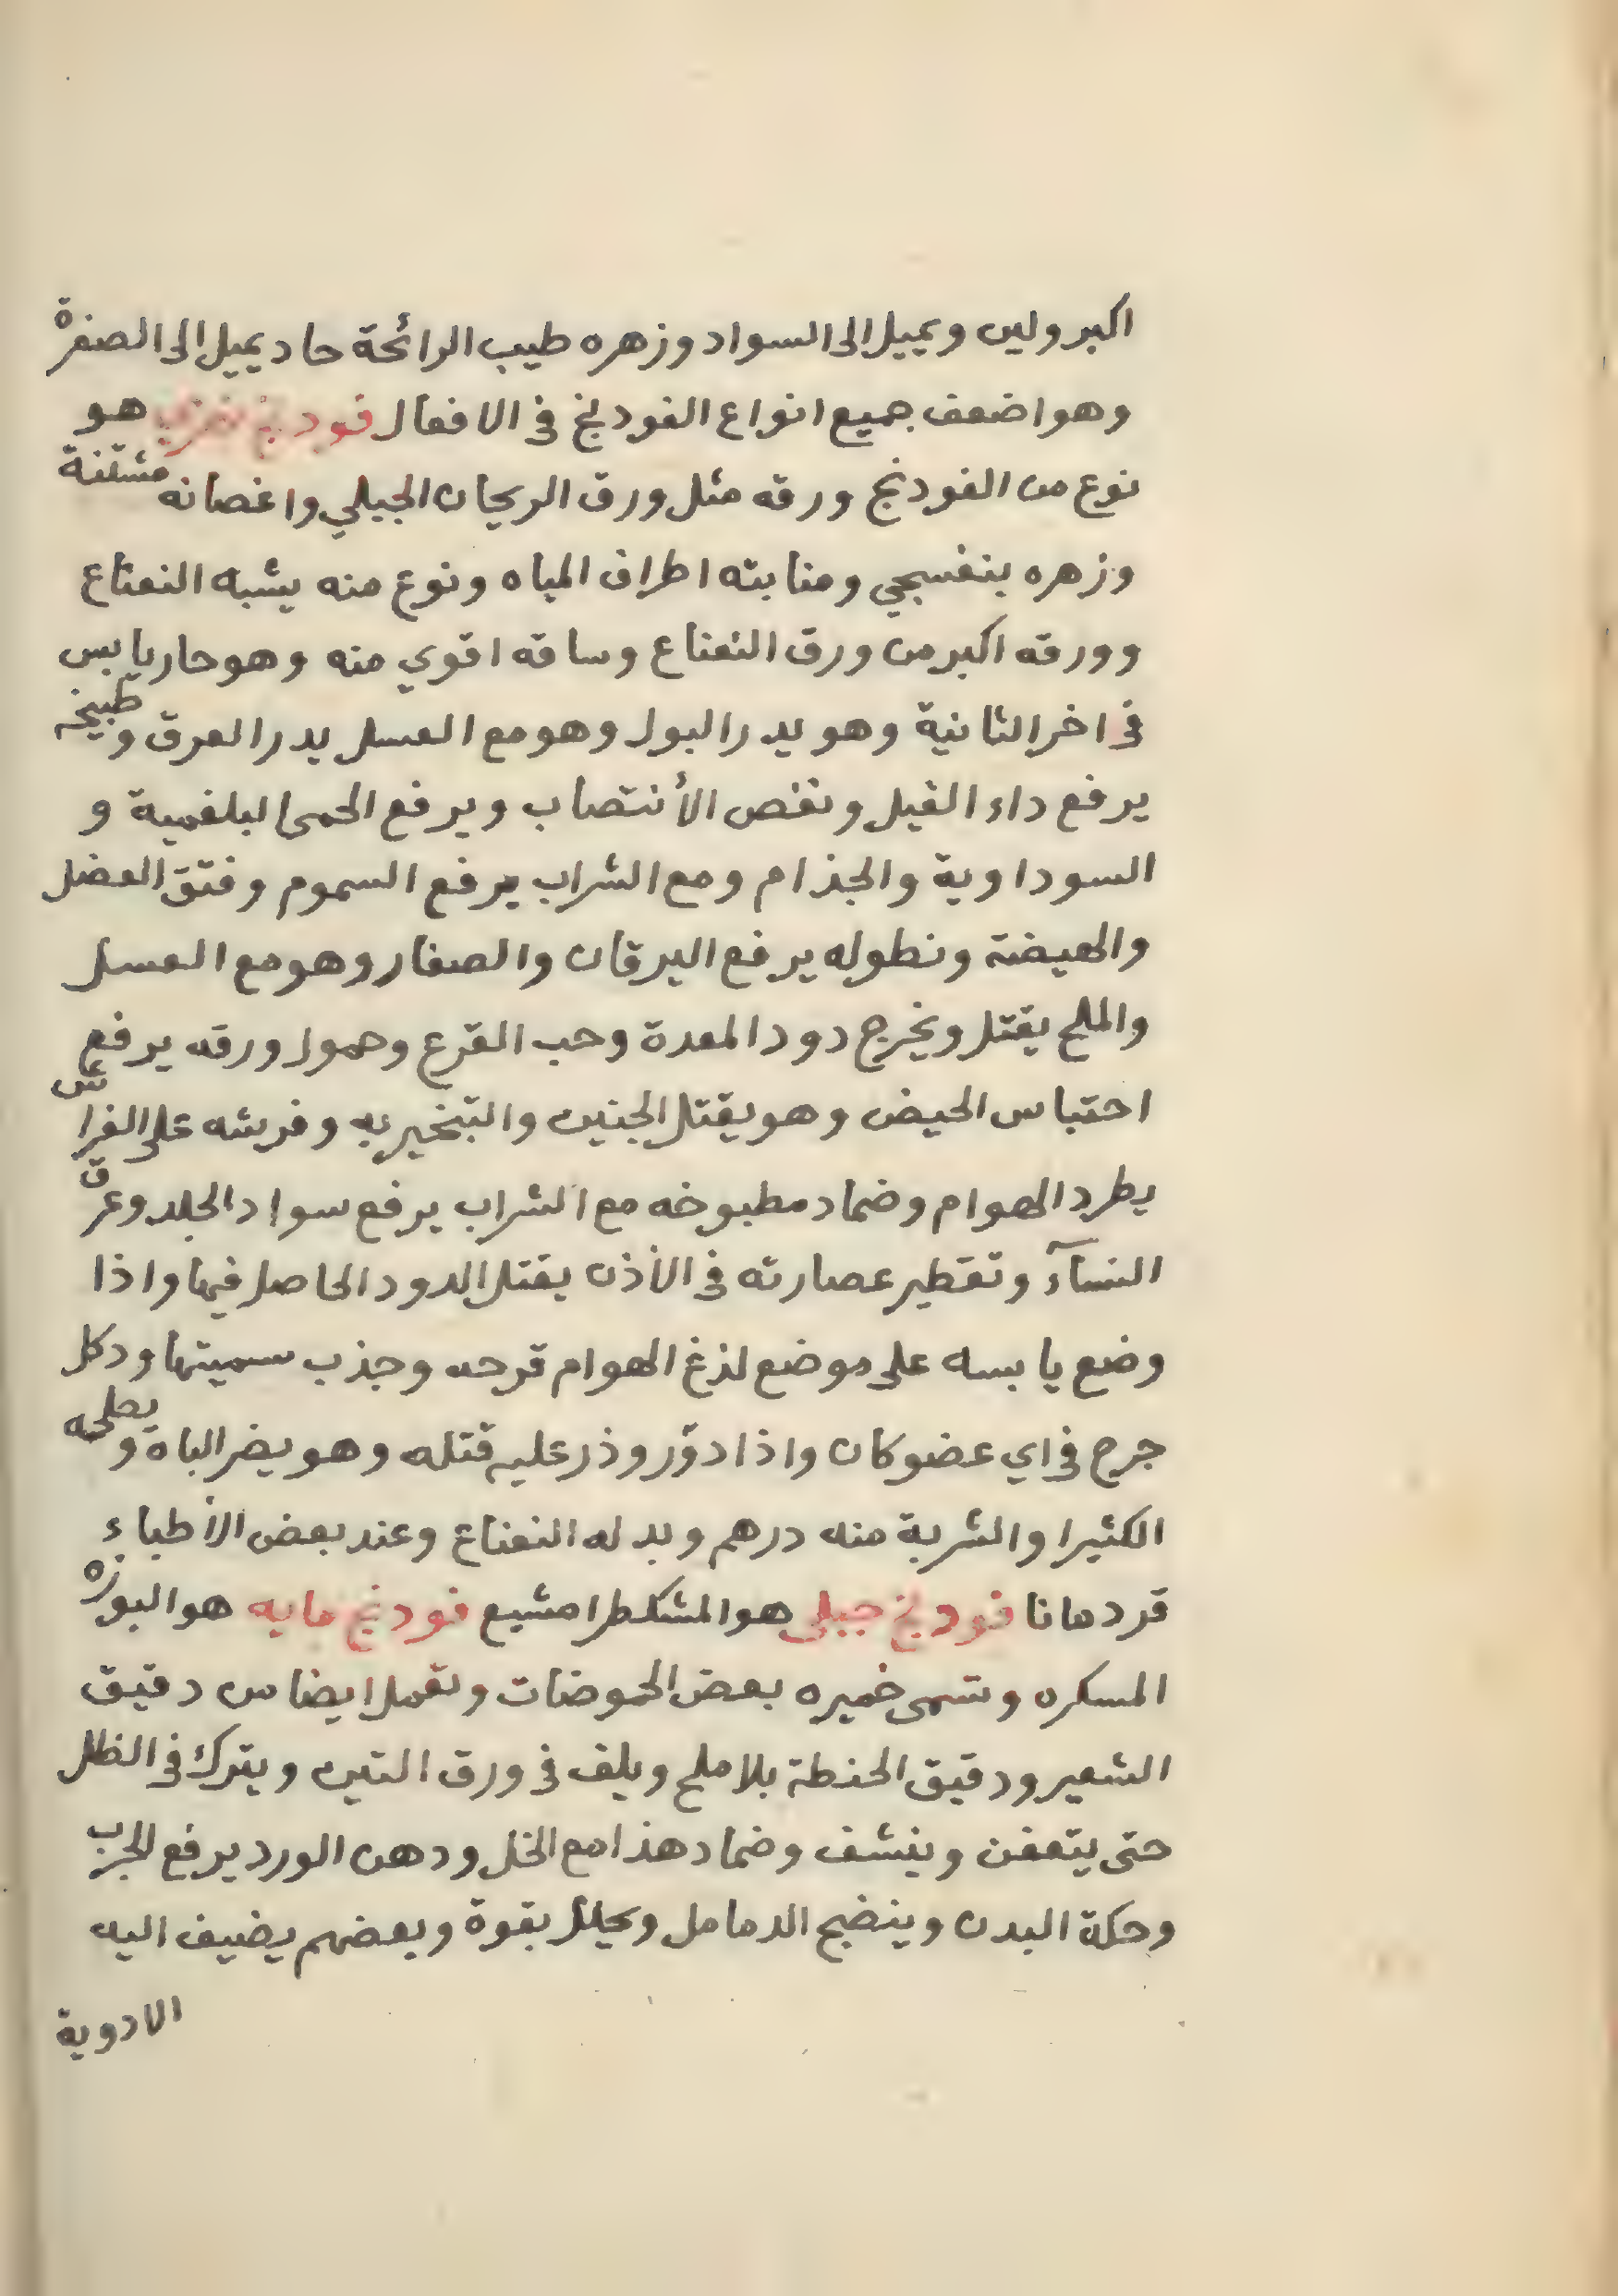 اكبر ولين ويميل الى السواد وزهره طيب الرائحة حاد يميل الى الصفرة
وهو اضعف جميع انواع الفودنج في الافعال فودنج نهري هو
نوع من الفودنج ورقه مثل ورق الريحان الجبلي واغصانه مشتنة
وزهره بنفسجي ومنابته اطراف المياه ونوع منه يشبه النعناع
وورقه اكبر من ورق النعناع وساقه اقوي منه وهو حار يابس
في اخر الثانية وهو يدر البول وهو مع العسل يدر العرق وطبيخه
يرفع داء الفيل ونقص الأنتصاب ويرفع الحمى البلغمية و
السوداوية والجذام ومع الشراب يرفع السموم وفتق العضل
والهيضة ونطوله يرفع اليرقان والصفار وهو مع العسل
والملح يقتل ويخرج دود المعدة وحب القرع وحمول ورقه يرفع
احتباس الحيض وهو يقتل الجنين والتبخير به وفريشه على الفراش
يطرد الهوام وضماد مطبوخه مع الشراب يرفع سواد الجلد وعرق
النسآء وتقطير عصارته في الأذن يقتل الدود الحاصل فيها واذا
وضع يابسه على موضع لذغ الهوام قرحه وجذب سميتها ودكل
جرح في اي عضو كان واذا دوّر وذر عليه قتله وهو يضر الباه ويصلحه
الكثيرا والشربة منه درهم وبدله النعناع وعند بعض الأطباء
قردمانا فودنج جبلي هو المشكطرامشيع فودنج مايه هو البوزه
المسكره وتسمى خميره بعض الحموضات وتعمل ايضا من دقيق
الشعير ودقيق الحنطة بلا ملح ويلف في ورق التين ويترك في الظل
حتى يتعفن وينشف وضماد هذا مع الخل ودهن الورد يرفع الجرب
وحكة البدن وينضج الدمامل ويحلل بقوة وبعضهم يضيف اليه
الادوية